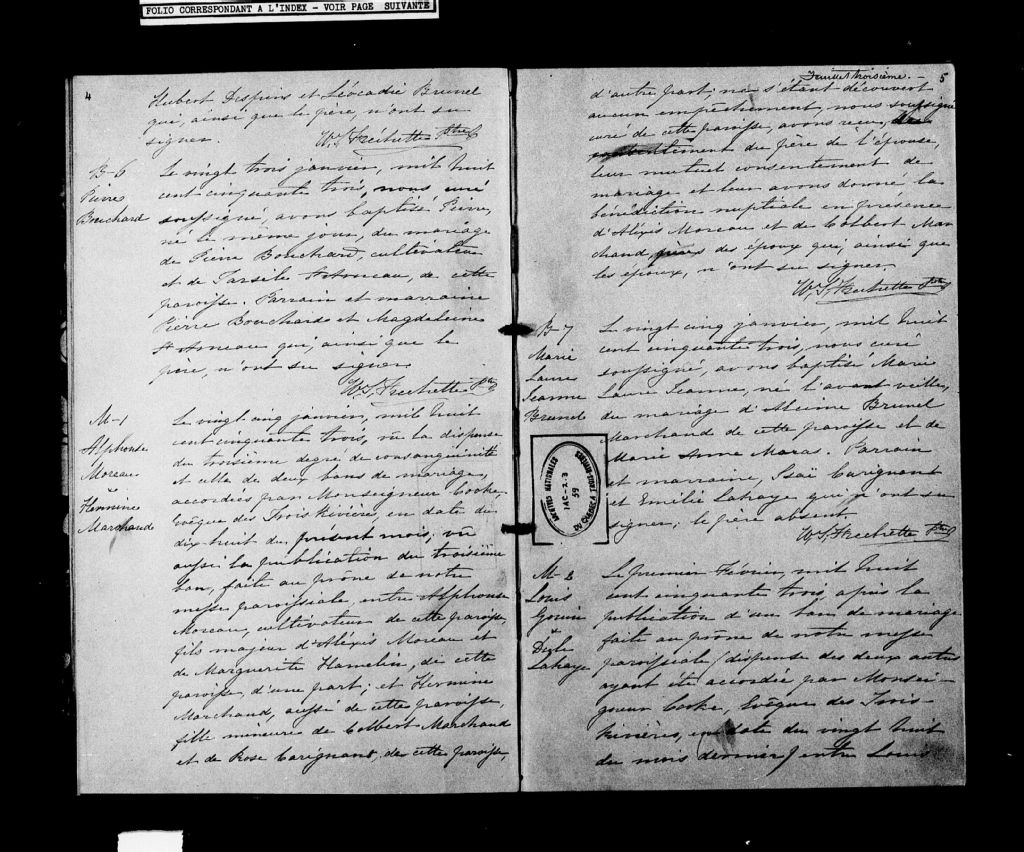 FOLIO CORRESPONDANT A L'INDEX - VOIR PAGE SUIVANTE
4
Hubert Despins et Léocadie Brunel
qui, ainsi que le père, n'ont su
signer.
W. S. Fréchette Ptre
B-6
Pierre
Bouchard
Le vingt trois janvier, mil huit
cent cinquante trois, nous curé
soussigné, avons baptisé Pierre,
né le même jour, du mariage
de Pierre Bouchard, cultivateur
et de Tarsile St Arneau, de cette
paroisse. Parrain et marraine
Pierre Bouchard et Magdeleine
St Arneau qui, ainsi que le
père, n'ont su signer.
W. S. Frechette Ptre
M-1
Alphonse
Moreau
&
Hermine
Marchand
Le vingt cinq janvier, mil huit
cent cinquante trois, vû la dispense
du troisième degré de consanguinité
et celle de deux bans de mariage,
accordées par Monseigneur Cooke,
Evêque des Trois Rivière, en date du
dix huit du présent mois, vû
aussi la publication du troisième
ban, faite au prône de notre
messe paroissiale, entre Alphonse
Moreau, cultivateur de cette paroisse,
fils majeur d'Aléxis Moreau et
de Marguerite Hamelin, de cette
paroisse, d'une part; et Hermine
Marchand, aussi de cette paroisse,
fille mineure de Colbert Marchand
et de Rose Carignant, de cette paroisse,
Feuillet troisième.
5
d'autre part, ne s'étant découvert
aucun empêchement, nous soussigné
curé de cette paroisse, avons recu,
du père de l'épouse,
leur mutuel consentement de
mariage et leur avons donné la
bénédiction nuptiale en presence
d'Aléxis Moreau et de Colbert Mar
chand pères des époux qui, ainsi que
les époux, n'ont su signer.
W. S. Frechette Ptre
B-7
Marie
Laure
Jeanne
Brunel
Le vingt cinq janvier, mil huit
cent cinquante trois, nous curé
soussigné, avons baptisé Marie
Laure Jeanne, né l'avant veille,
du mariage d'Alcime Brunel
Marchand de cette paroisse et de
Marie Anne Maras. Parrain
et marraine, Isaë Carignant
et Emilie Lahaye qui n'ont su
signer; le père absent.
W. S. Frechette Ptre
ARCHIVES NATIONALES
IAC-2.3
59
DU QUEBEC A
M-2
Louis
Gouin
&
Lahaye
Le premier Février, mil huit
cent cinquante trois, après la
publication d'un ban de mariage
faite au prône de notre messe
paroissiale (dispense des deux autres
ayant été accordée par Monsei-
gneur Cooke, Evêque des Trois-
Rivières, en date du vingt huit
du mois dernier) entre Louis